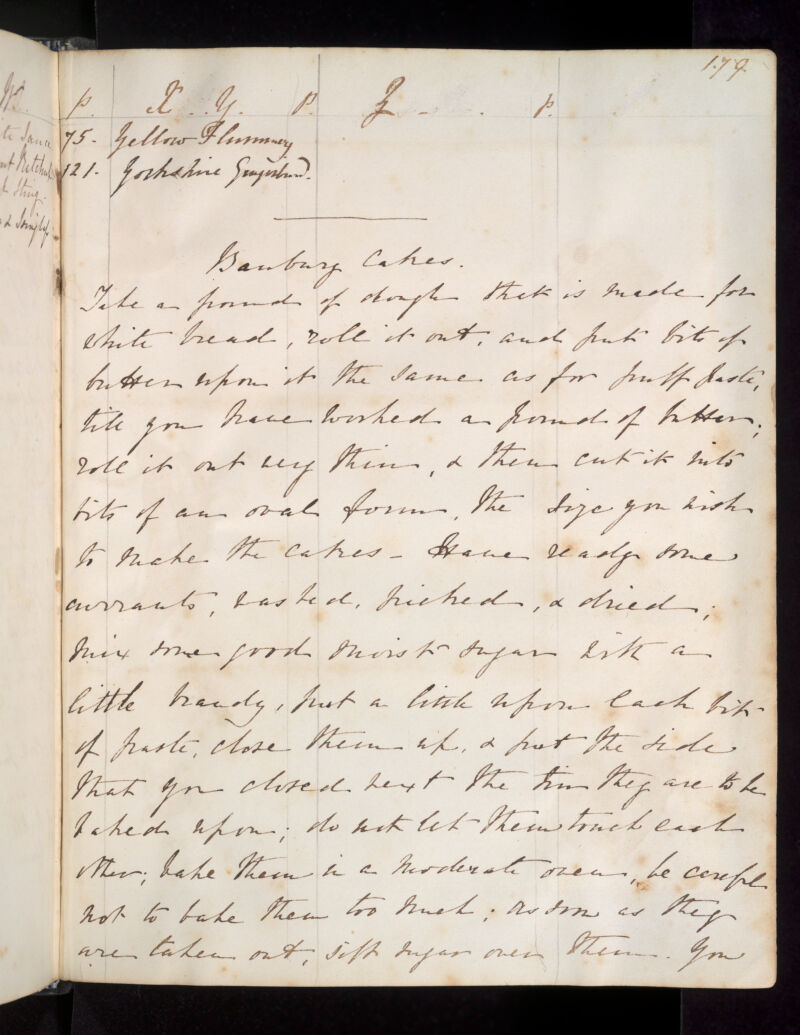 179.
p. X. Y. p. Z - . p.
75. Yellow Flummery
121. Yorkshire Gingerbread.
Banbury Cakes.
Take a pound of dough that is made for
white bread, roll it out, and put bits of
butter upon it the same as for puff paste,
till you have worked a pound of butter;
roll it out very thin, & then cut it into
bits of an oval form, the size you wish
to make the cakes - Have ready some
currants, washed, picked, & dried;
mix some good moist sugar with a
little brandy, put a little upon each bit
of paste, close them up, & put the side
that you closed next the tin they are to be
baked upon; do not let them touch each
other; bake them in a moderate oven, be careful
not to bake them too much; as soon as they
are taken out, sift sugar over them. You